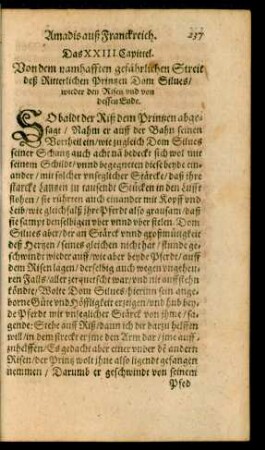 Amadis auß Franckreich. 237
Das XXIII Capittel.
Von dem namhafften gefährlichen Streit
deß Ritterlichen Printzen Dom Silues/
wieder den Risen vnd von
dessen Ende.
SObaldt der Riß dem Printzen abge-
sagt / Nahm er auff der Bahn seinen
Vortheil ein/ wie zugleich Dom Silues
seiner Schantz auch acht nā bedeckt sich wol mit
seinem Schildt/ vnnd begegneten diese beyde ein-
ander / mit solcher vnseglicher Stärcke/ daß ihre
starcke Lantzen in tausendt Stücken in den Lufft
stohen / sie rührten auch einander mit Kopff vnd
Leib/ wie gleichfalß ihre Pferde also grausam/ daß
sie sampt denselbigen vber vnnd vber fielen. Dom
Silues aber/ der an Stärck vnnd großmütigkeit
deß Hertzen / seines gleichen nicht hat / stunde ge-
schwindt wieder auff/ wie aber beyde Pferde / auff
dem Risen lagen / derselbig auch wegen vngeheu-
ren Falls/ aller zerquetscht war/ vnd nit auffstehn
köndte/ Wolte Dom Silues/ hierinn sein ange-
borne Güte vnd Höffligkeit erzeigen/ vnd hub bey-
de Pferdt mit vnseglicher Stärck von ihme / sa-
gende: Stehe auff Riß/ dann ich dir darzu helffen
will/ in dem streckt er jme den Arm dar / jme auff-
zuhelffen/ Es gedacht aber einer vnder dē andern
Risen/ der Printz wolt jhne also ligendt gefangen
nemmen / Darumb er geschwindt von seinem
Pferd